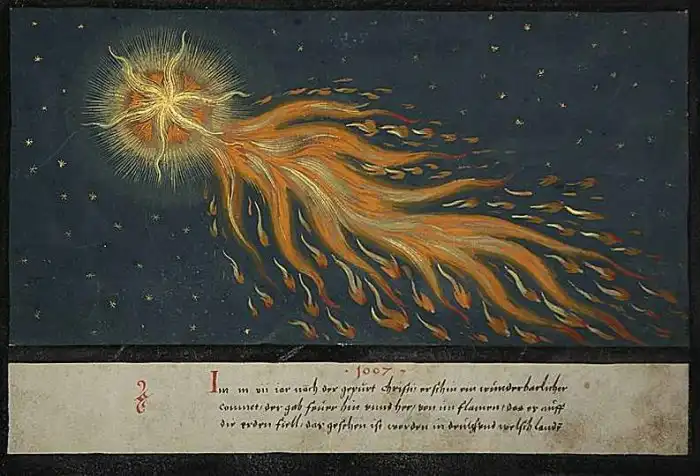 · 1007 ·
Im m vii iar nach der gepurt Christi erschin ein wunderbarlicher
comnet, der gab feuer hin vnnd her, von im flamen, das er auff
die erden fiell, das gesehen ist worden in deutschs vnd welsch landt